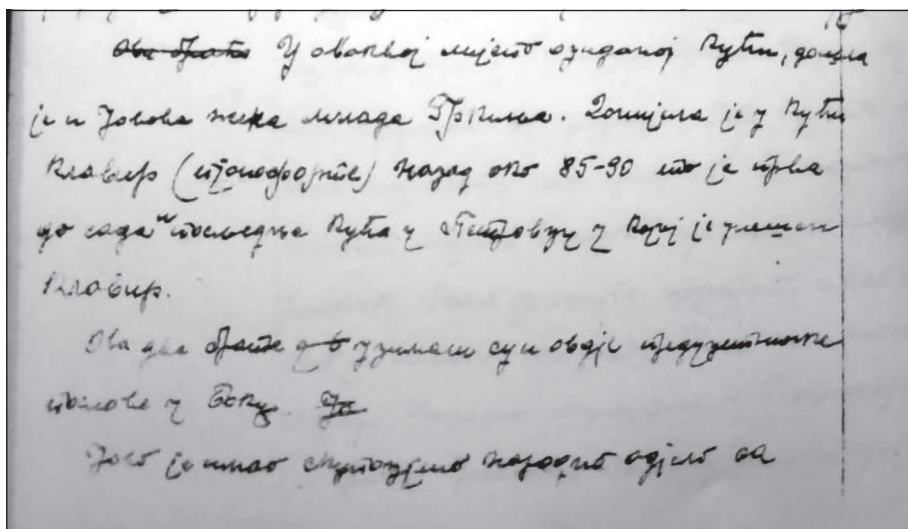 Ова браћа У оваквој мјесто озиданој кући, дошла
је и Јовова жена млада Гркиња. Донијела је у кућу
клавир (пјанофорте) назад око 85-90 што је прва
до сада и последња кућа у Петровцу у којој је унешен
клавир.
Ова два брата узимали су и овдје предузетничке
послове у Боки.
Јово је имао скупоцјено народно одјело са